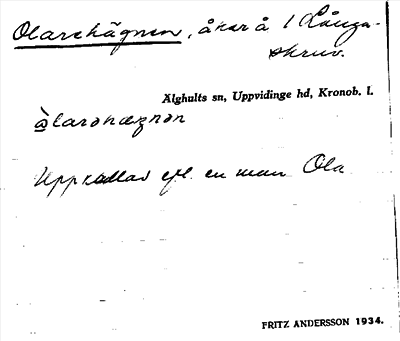 Olarehägnen, åker å 1 Långa-
skruv.
Älghults sn, Uppvidinge hd, Kronob. l.
Uppkallad eft. en man Ola
FRITZ ANDERSSON 1934.